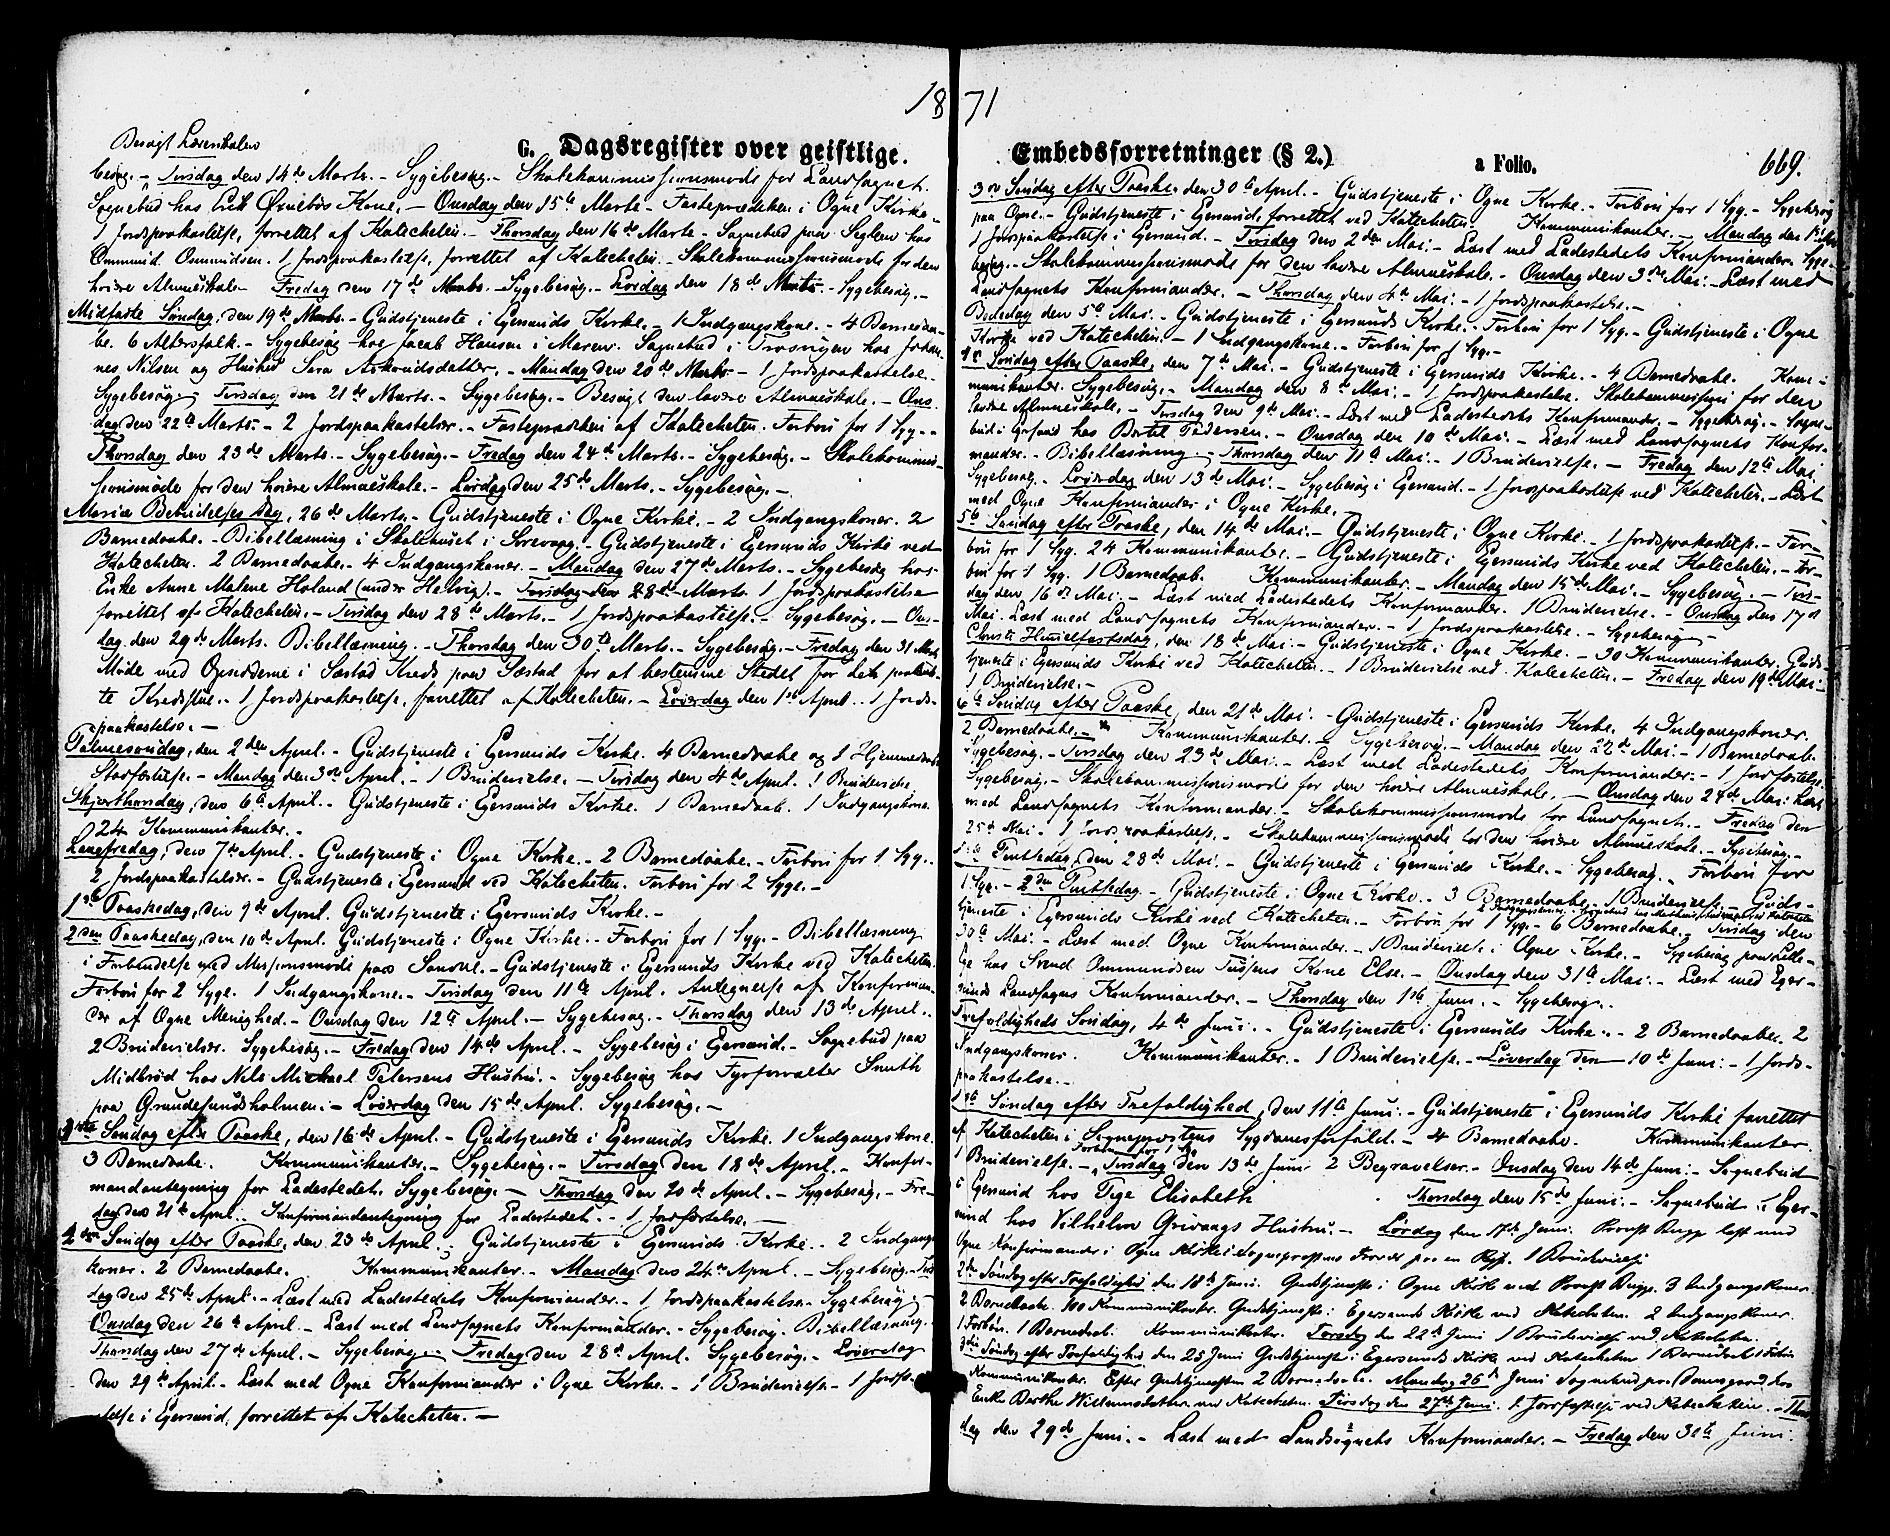 1871
G. Dagsregister over geistlige. Embedsforretninger (§ 2.) a Folio. 669.
Besøgt Lærerskolen
besøg. - Tirsdag den 14de Marts. - Sygebesøg. - Skolekommissionsmøde for Landsognet.
Sognebud hos Erik Ørnebøs Kone. - Onsdag den 15de Marts. - Fasteprædiken i Ogne Kirke. -
1 Jordspaakastelse, forrettet af Katecheten. - Thorsdag den 16de Marts. - Sognebud paa Seglem hos
Ommund Ommundsen. 1 Jordspaakastelse, forrettet af Katecheten. - Skolekommissionsmøde for den
høiere Almueskole. Fredag den 17de Marts. - Sygebesøg. - Lørdag den 18de Marts. - Sygebesøg. -
Midfaste Søndag, den 19de Marts. - Gudstjeneste i Egersunds Kirke. - 1 Indgangskone. - 4 Barnedaa-
be. 6 Altersfolk. - Sygebesøg hos Jacob Hansen i Maren. Sognebud i hos Johan-
nes Nilsen og Hustru Sara Askoudsdatter. - Mandag den 20de Marts - 1 Jordspaakastelse.
Sygebesøg. - Tirsdag den 21de Marts. - Sygebesøg. - Besøgt den lavere Almueskole. - Ons-
dag den 22de Marts. - 2 Jordspaakastelser. - Fasteprædiken af Katecheten. Forbøn for 1 Syg. -
Thorsdag den 23de Marts. - Sygebesøg. - Fredag den 24de Marts. - Sygebesøg. - Skolekommis-
sionsmøde for den høiere Almueskole. - Lørdag den 25de Marts. - Sygebesøg. -
Mariæ Bebudelses Dag, 26de Marts - Gudstjeneste i Ogne Kirke. - 2 Indgangskoner. 2
Barnedaabe. - Bibellæsning i Skolehuset i Sirevaag. - Gudstjeneste i Egersunds Kirke ved
Katecheten. 2 Barnedaabe. - 4 Indgangskoner. - Mandag den 27de Marts. - Sygebesøg hos
Enke Anne Malene Holand (under Helvig). - Tirsdag den 28de Marts 1 Jordspaakastelse
forrettet af Katecheten. - Tirsdag den 28de Marts. - 1 Jordspaakastelse. - Sygebesøg. - Ons-
dag den 29de Marts. Bibellæsning. - Thorsdag den 30te Marts. - Sygebesøg. - Fredag den 31 Marts
Møde med Opsidderne i Søstad Kreds paa Søstad for at bestemme Stedet for det
te Kredshus. - 1 Jordspaakastelse, forrettet af Katecheten. - Løverdag den 1ste April. - 1 Jords-
paakastelse. -
Palmesøndag, den 2den April. - Gudstjeneste i Egersunds Kirke. 4 Barnedaabe og 1 Hjemmedaabs
Stadfæstelse. - Mandag den 3die April. - 1 Brudevielse. - Tirsdag den 4de April. 1 Brudevielse.
Skjærthorsdag, den 6te April. - Gudstjeneste i Egersunds Kirke. 1 Barnedaab. 1 Indgangskone.
24 Kommunikanter. -
Langfredag, den 7de April. - Gudstjeneste i Ogne Kirke. - 2 Barnedaabe. - Forbøn for 1 Syg. -
2 Jordspaakastelser. - Gudstjeneste i Egersund ved Katecheten. Forbøn for 2 Syge. -
1ste Paaskedag, den 9de April. Gudstjeneste i Egersunds Kirke. -
2den Paaskedag, den 10de April. Gudstjeneste i Ogne Kirke. - Forbøn for 1 Syg. - Bibellæsning
i Forbindelse med Missionsmøde paa . - Gudstjeneste i Egersunds Kirke ved Katecheten.
Forbøn for 2 Syge. 1 Indgangskone. - Tirsdag den 11te April. Antegnelse af Konfirman-
der af Ogne Menighed. - Onsdag den 12te April. - Sygebesøg. - Thorsdag den 13de April. -
2 Brudevielser. Sygebesøg. - Fredag den 14de April. - Sygebesøg i Egersund. - Sognebud paa
Midbrød hos Nils Michael Petersens Hustru. - Sygebesøg hos Fyrforvalter Smith
paa Grundesundsholmen. - Løverdag den 15de April. Sygebesøg. -
1ste Søndag efter Paaske, den 16de April. - Gudstjeneste i Egersunds Kirke. 1 Indgangskone.
3 Barnedaabe. Kommunikanter. - Sygebesøg. - Tirsdag den 18de April. - Konfir-
mandantegning for Ladestedet. Sygebesøg. - Thorsdag den 20de April. - Sygebesøg. - Fre-
dag den 21de April. Konfirmandantegning for Ladestedet. - 1 Jordfæstelse. -
2den Søndag efter Paaske, den 23de April. - Gudstjeneste i Egersunds Kirke. - 2 Indgangs-
koner. 2 Barnedaabe. Kommunikanter. - Mandag den 24de April. - Sygebesøg. Tirs-
dag den 25de April. - Læst med Ladestedets Konfirmander. - 1 Jordspaakastelse. Sygebesøg. -
Onsdag den 26de April. - Læst med Landsognets Konfirmander. - Sygebesøg. Bibellæsning.
Thorsdag den 27de April. - Sygebesøg. - Fredag den 28de April. Sygebesøg. - Løverdag
den 29de April. - Læst med Ogne Konfirmander i Ogne Kirke. - 1 Brudevielse. - 1 Jordfæ-
stelse i Egersund, forrettet af Katecheten. -
3die Søndag efter Paaske, den 30te April. - Gudstjeneste i Ogne Kirke. - Forbøn for 1 Syg. - Sygebesøg
paa Ogne. - Gudstjeneste i Egersund, forrettet ved Katecheten. Kommunikanter. - Mandag den 1ste Mai
1 Jordspaakastelse i Egersund. - Tirsdag den 2den Mai. - Læst med Ladestedets Konfirmander. Syge-
besøg. - Skolekommissionsmøde for den lavere Almueskole. - Onsdag den 3die Mai. - Læst med
Landsognets Konfirmander. - Thorsdag den 4de Mai. - 1 Jordspaakastelse. -
Bededag den 5te Mai. - Gudstjeneste i Egersunds Kirke. - Forbøn for 1 Syg. - Gudstjeneste i Ogne
Kirke ved Katecheten. - 1 Indgangskone. - Forbøn for 1 Syg. -
4de Søndag efter Paaske, den 7de Mai. - Gudstjeneste i Egersunds Kirke. - 4 Barnedaabe. Kom-
munikanter. Sygebesøg. - Mandag den 8de Mai. - 1 Jordspaakastelse. Skolekommission for den
lavere Almueskole. - Tirsdag den 9de Mai. - Læst med Ladestedets Konfirmander. - Sygebesøg. - Sogne-
bud i hos Bertil Pedersen. - Onsdag den 10de Mai. - Læst med Landsognets Konfir-
mander. - Bibellæsning. - Thorsdag den 11te Mai. - 1 Brudevielse. - Fredag den 12te Mai
Sygebesøg. - Løverdag den 13de Mai. - Sygebesøg i Egersund. - 1 Jordspaakastelse ved Katecheten. - Læst
med Ogne Konfirmander i Ogne Kirke. -
5te Søndag efter Paaske, den 14de Mai. - Gudstjeneste i Ogne Kirke. - 1 Jordspaakastelse. - For-
bøn for 1 Syg. 24 Kommunikanter. - Gudstjeneste i Egersunds Kirke ved Katecheten. - For-
bøn for 1 Syg. 1 Barnedaab. Kommunikanter. - Mandag den 15de Mai. - Sygebesøg. - Tirs-
dag den 16de Mai. - Læst med Ladestedets Konfirmander. 1 Brudevielse. - Onsdag den 17de
Mai. Læst med Landsognets Konfirmander. - 1 Jordspaakastelse. - Sygebesøg -
Christi Himmelfartsdag, den 18de Mai. - Gudstjeneste i Ogne Kirke. - 30 Kommunikanter. Guds-
tjeneste i Egersunds Kirke ved Katecheten. - 1 Brudevielse ved Katecheten. - Fredag den 19de Mai. -
1 Brudevielse. -
6te Søndag efter Paaske, den 21de Mai. - Gudstjeneste i Egersunds Kirke. 4 Indgangskoner.
2 Barnedaabe. - Kommunikanter. - Sygebesøg. - Mandag den 22de Mai. - 1 Barnedaab.
Sygebesøg. - Tirsdag den 23de Mai. - Læst med Ladestedets Konfirmander. - 1 Jordfæstelse.
Sygebesøg. - Skolekommissionsmøde for den høiere Almueskole. - Onsdag den 24de Mai: Læst
med Landsognets Konfirmander. - Skolekommissionsmøde for Landsognet. - Fredag den
25de Mai. - 1 Jordspaakastelse. - Skolekommissionsmøde for den høiere Almueskole. - Sygebesøg. -
1ste Pintsedag, den 28de Mai. - Gudstjeneste i Egersunds Kirke. - Sygebesøg. - Forbøn for
1 Syg. - 2den Pintsedag. - Gudstjeneste i Ogne Kirke. - 3 Barnedaabe. - 1 Brudevielse. - Guds-
tjeneste i Egersunds Kirke ved Katecheten. - Forbøn for 1 Syg. - 6 Barnedaabe. - Tirsdag den
30te Mai. - Læst med Ogne Konfirmander. - 1 Brudevielse i Ogne Kirke. - Sygebesøg paa Lille-
 hos Svend Ommundsen Kone Else. - Onsdag den 31te Mai. - Læst med Eger-
sunds Landsogns Konfirmander. - Thorsdag den 1ste Juni. - Sygebesøg. -
Trefoldigheds Søndag, 4de Juni. - Gudstjeneste i Egersunds Kirke. - 2 Barnedaabe. 2
Indgangskoner. Kommunikanter. - 1 Brudevielse. - Løverdag den 10de Juni. - 1 Jords-
paakastelse. -
1ste Søndag efter Trefoldighed, den 11te Juni. - Gudstjeneste i Egersunds Kirke forrettet
af Katecheten i Sogneprestens Sygdomsforfald. - 4 Barnedaabe. Kommunikanter.
Forbøn for 1 Syg
1 Brudevielse. - Tirsdag den 13de Juni 2 Begravelser. - Onsdag den 14de Juni. - Sognebud
i Egersund hos Pige Elisabeth Thorsdag den 15de Juni. - Sognebud i Eger-
sund hos Vilhelm Hustru. - Lørdag den 17de Juni. Provst læst med
Ogne Konfirmander i Ogne Kirke i Sogneprestens Fravær paa en Reise. 1 Brudevielse
2den Søndag efter Trefoldighed den 18de Juni. Gudstjeneste i Ogne Kirke ved Provst . 3 Indgangskoner
2 Barnedaabe. 100 Kommunikanter. Gudstjeneste i Egersunds Kirke ved Katecheten. 2 Indgangskoner.
1 Forbøn. 1 Barnedaab. Kommunikanter. Torsdag den 22de Juni 1 Brudevielse ved Katecheten.
3die Søndag efter Trefoldighed den 25 Juni Gudstjeneste i Egersunds Kirke ved Katecheten 1 Barnedaab 1 Forbøn
Kommunikanter. Efter Gudstjenesten 2 Barnedaabe. Mandag 26de Juni Sognebud paa hos
Enke Berthe Willumsdatter ved Katecheten. Tirsdag den 27de Juni. 1 Jordfæstelse ved Katecheten. - Thors-
dag den 29de Juni. - Læst med Landsognets Konfirmander. - Fredag den 30te Juni.